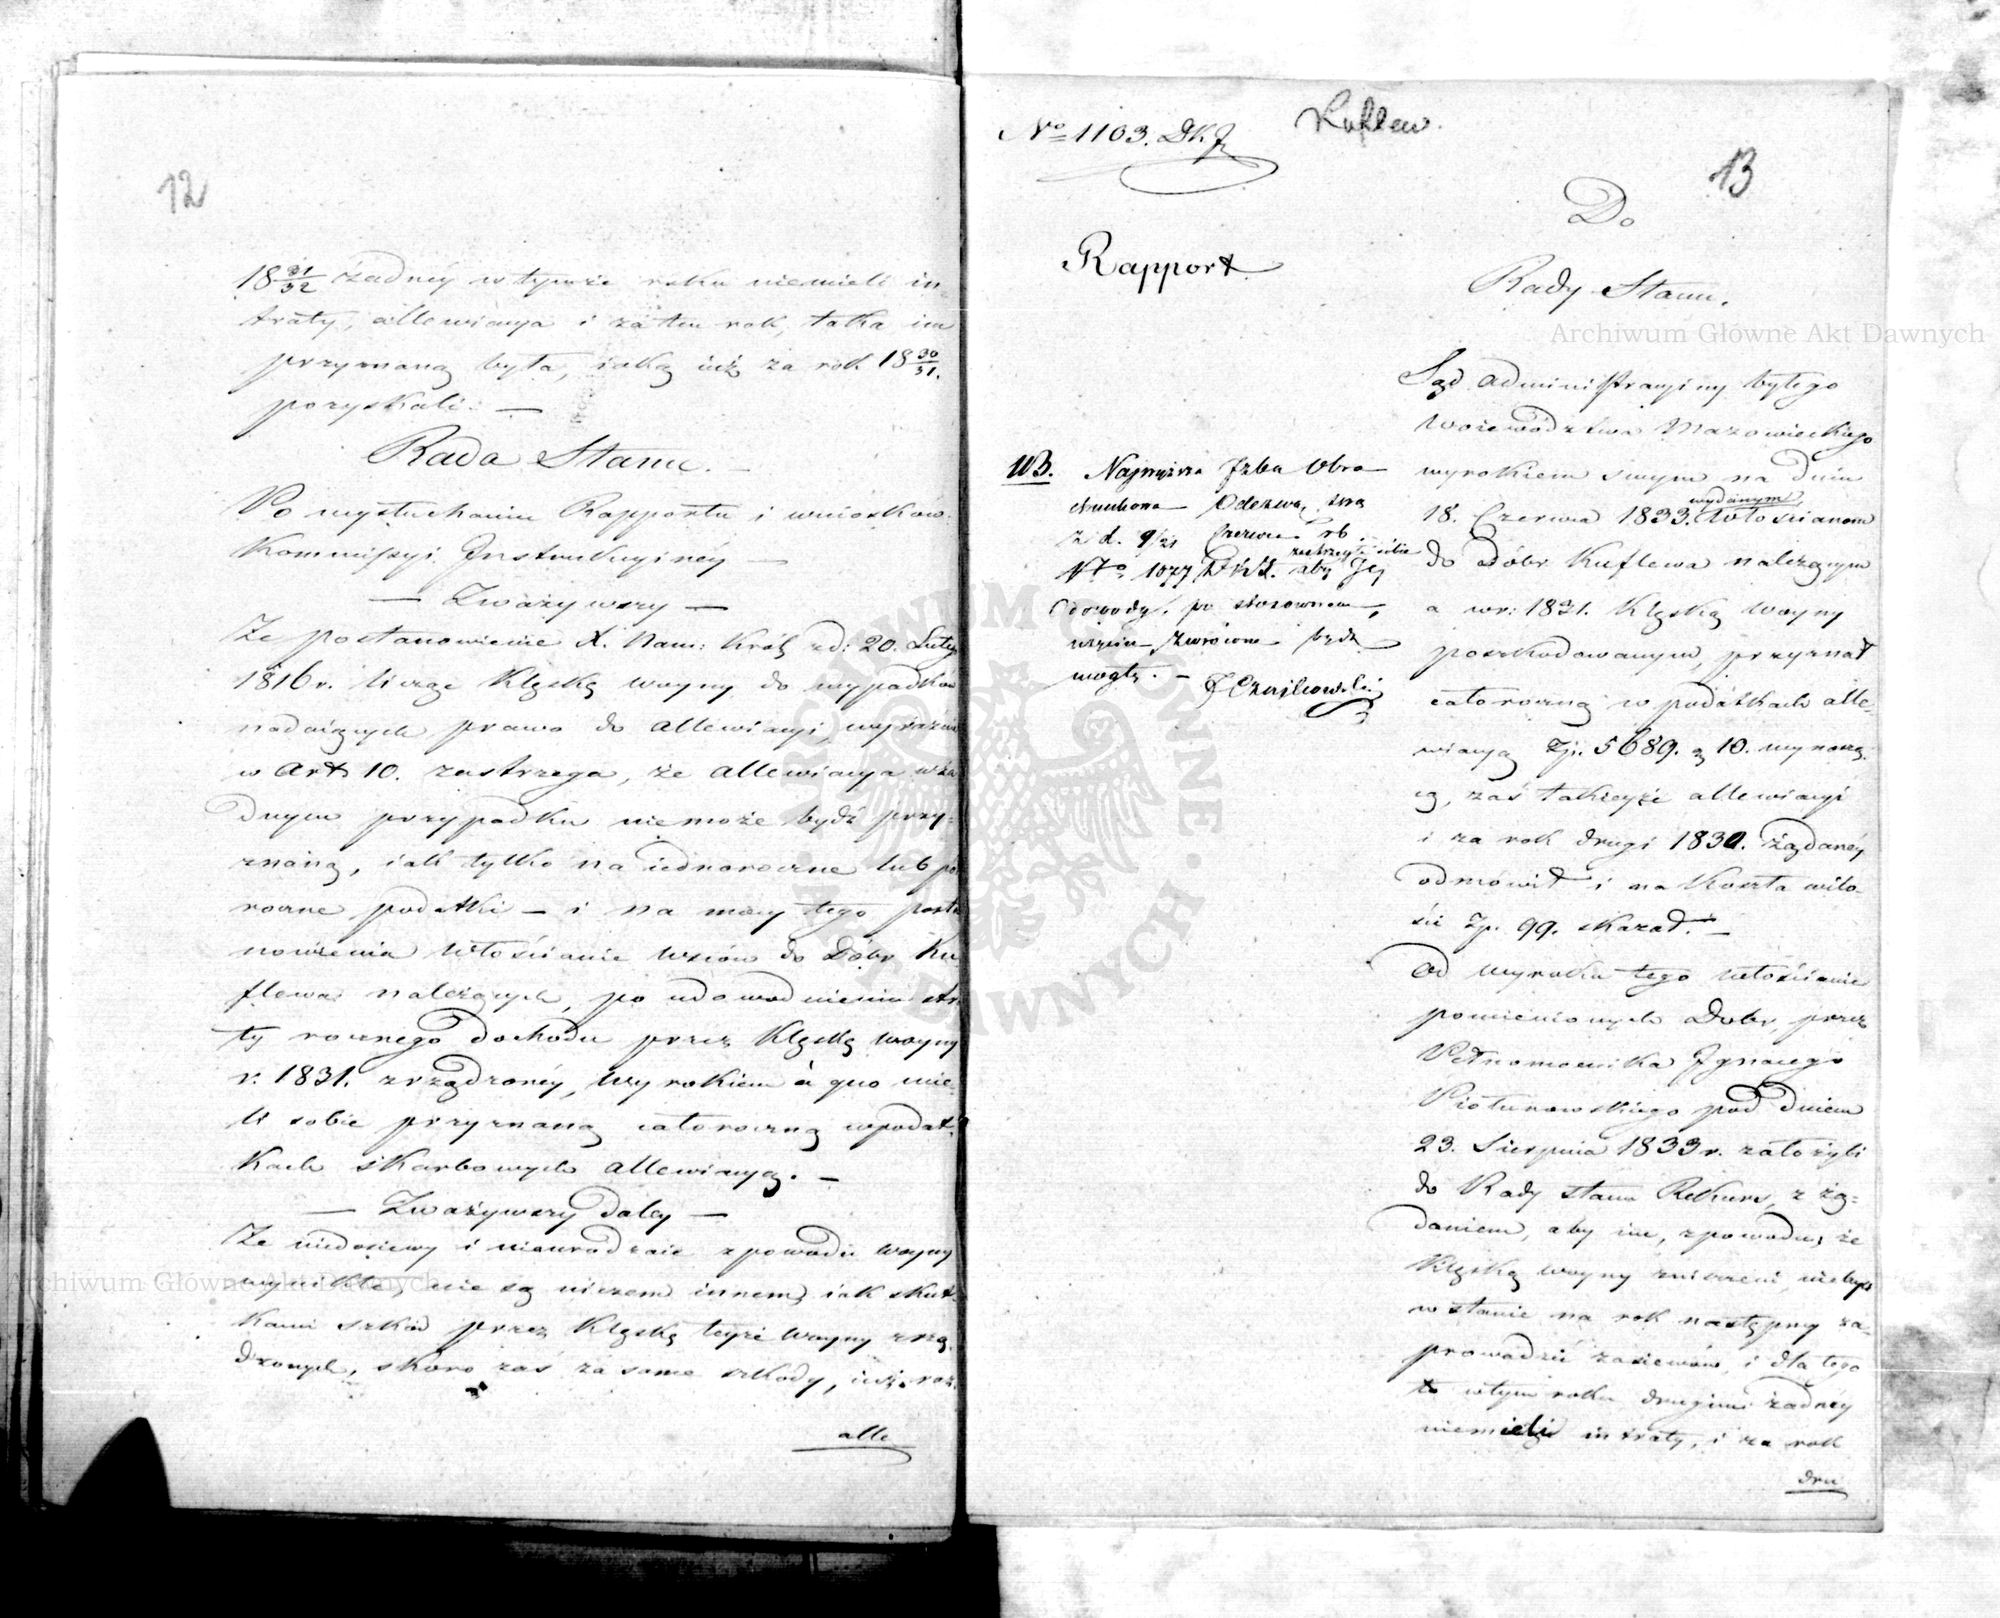 12
18 31/32 żadnéy w tymże roku niemieli in-
traty, allewiacya i za ten rok, taka im
przyznaną była, iaką iuż za rok 18 30/31.
pozyskali. —
Rada Stanu. —
Po wysłuchaniu Rapportu i wniosków
Kommissyi Instrukcyinéy —
— Zważywszy —
Że postanowienie X. Nam: Król. z d: 20. Lutego
1816 r. licząc Klęskę woyny do wypadków
nadaiących prawo do allewiacyi, wyraźnie
w Art. 10. zastrzega, że allewiacya w ża-
dnym przypadku niemoże bydź przy-
znaną, iak tylko na iednoroczne lub pół
roczne podatki — i na mocy tego posta
nowienia Włościanie wsiów do Dóbr Ku
flewa należących, po udowodnieniu stra
ty rocznego dochodu przez Klęskę woyny
r. 1831. zrządzonéy, Wyrokiem à quo mie-
li sobie przyznaną całoroczną w podat-
kach skarbowych allewiacyą. —
— Zważywszy daléy —
Że niedosiewy i nieurodzaie z powodu woyny
wynikłe, nie są niczem innem, iak skut-
kami szkód przez Klęskę teyże Woyny zrzą
dzonych, skoro zaś za same szkody, iuż raz
alle
No 1103. DKJ
Kuflew.
13
Rapport.
Do
Rady Stanu.
Archiwum Główne Akt Dawnych
Sąd administracyiny byłego
Woiewództwa Mazowieckiego
wyrokiem swym na dniu
18. Czerwca 1833. wydanym Włościanom
do Dóbr Kuflewa należącym
a w r: 1831. Klęską Woyny
poszkodowanym, przyznał
całoroczną w podatkach alle-
wiacyą Zp. 5689. g 10. wynoszą-
cą, zaś takieyże allewiacyi
i za rok drugi 1832. żądanéy
odmówił i na koszta w ilo-
ści Zp. 99. skazał. —
Od wyroku tego włościanie
pomienionych Dóbr, przez
Pełnomocnika Ignacego
Piotunowskiego pod dniem
23. Sierpnia 1833 r. założyli
do Rady Stanu Rekurs, z żą-
daniem, aby im, z powodu, że
Klęską woyny zniszczeni, niebyli
w stanie na rok następny za-
prowadzić zasiewów, i dla tego
w tym roku drugim żadnéy
niemieli intraty, i za rok
dru
NB. Najwyższa Izba Obra
chunkowa Odezwą swą
z d. 9/21 Czerwca r b.
No 1077 zastrzegła sobie aby Jej
dowody, po stosownem,
użyciu zwrócone bydź
mogły. —
J Czajkowski
ARCHIWUM GŁÓWNE · AKT DAWNYCH ·
Archiwum Główne Akt Dawnych